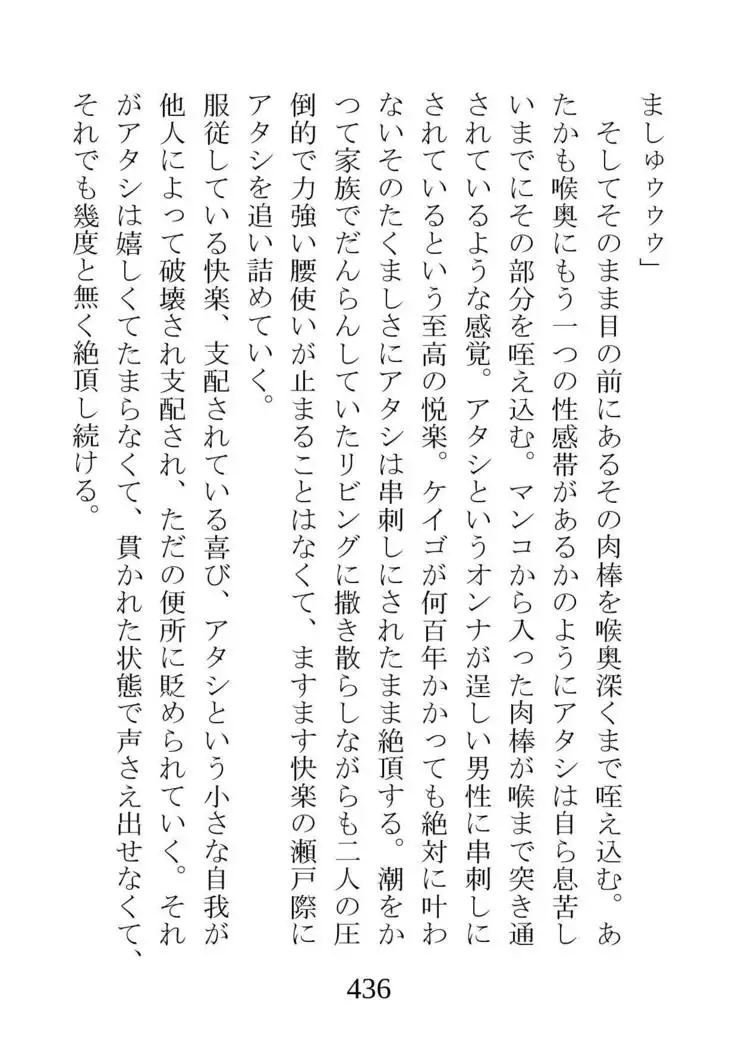 ましゅゥゥゥ」
そしてそのまま目の前にあるその肉棒を喉奥深くまで咥え込む。あ
たかも喉奥にもう一つの性感帯があるかのようにアタシは自ら息苦し
いまでにその部分を咥え込む。マンコから入った肉棒が喉まで突き通
されているような感覚。アタシというオンナが逞しい男性に串刺しに
されているという至高の悦楽。ケイゴが何百年かかっても絶対に叶わ
ないそのたくましさにアタシは串刺しにされたまま絶頂する。潮をか
つて家族でだんらんしていたリビングに撒き散らしながらも二人の圧
倒的で力強い腰使いが止まることはなくて、ますます快楽の瀬戸際に
アタシを追い詰めていく。
服従している快楽、支配されている喜び、アタシという小さな自我が
他人によって破壊され支配され、ただの便所に貶められていく。それ
がアタシは嬉しくてたまらなくて、貫かれた状態で声さえ出せなくて、
それでも幾度と無く絶頂し続ける。
436